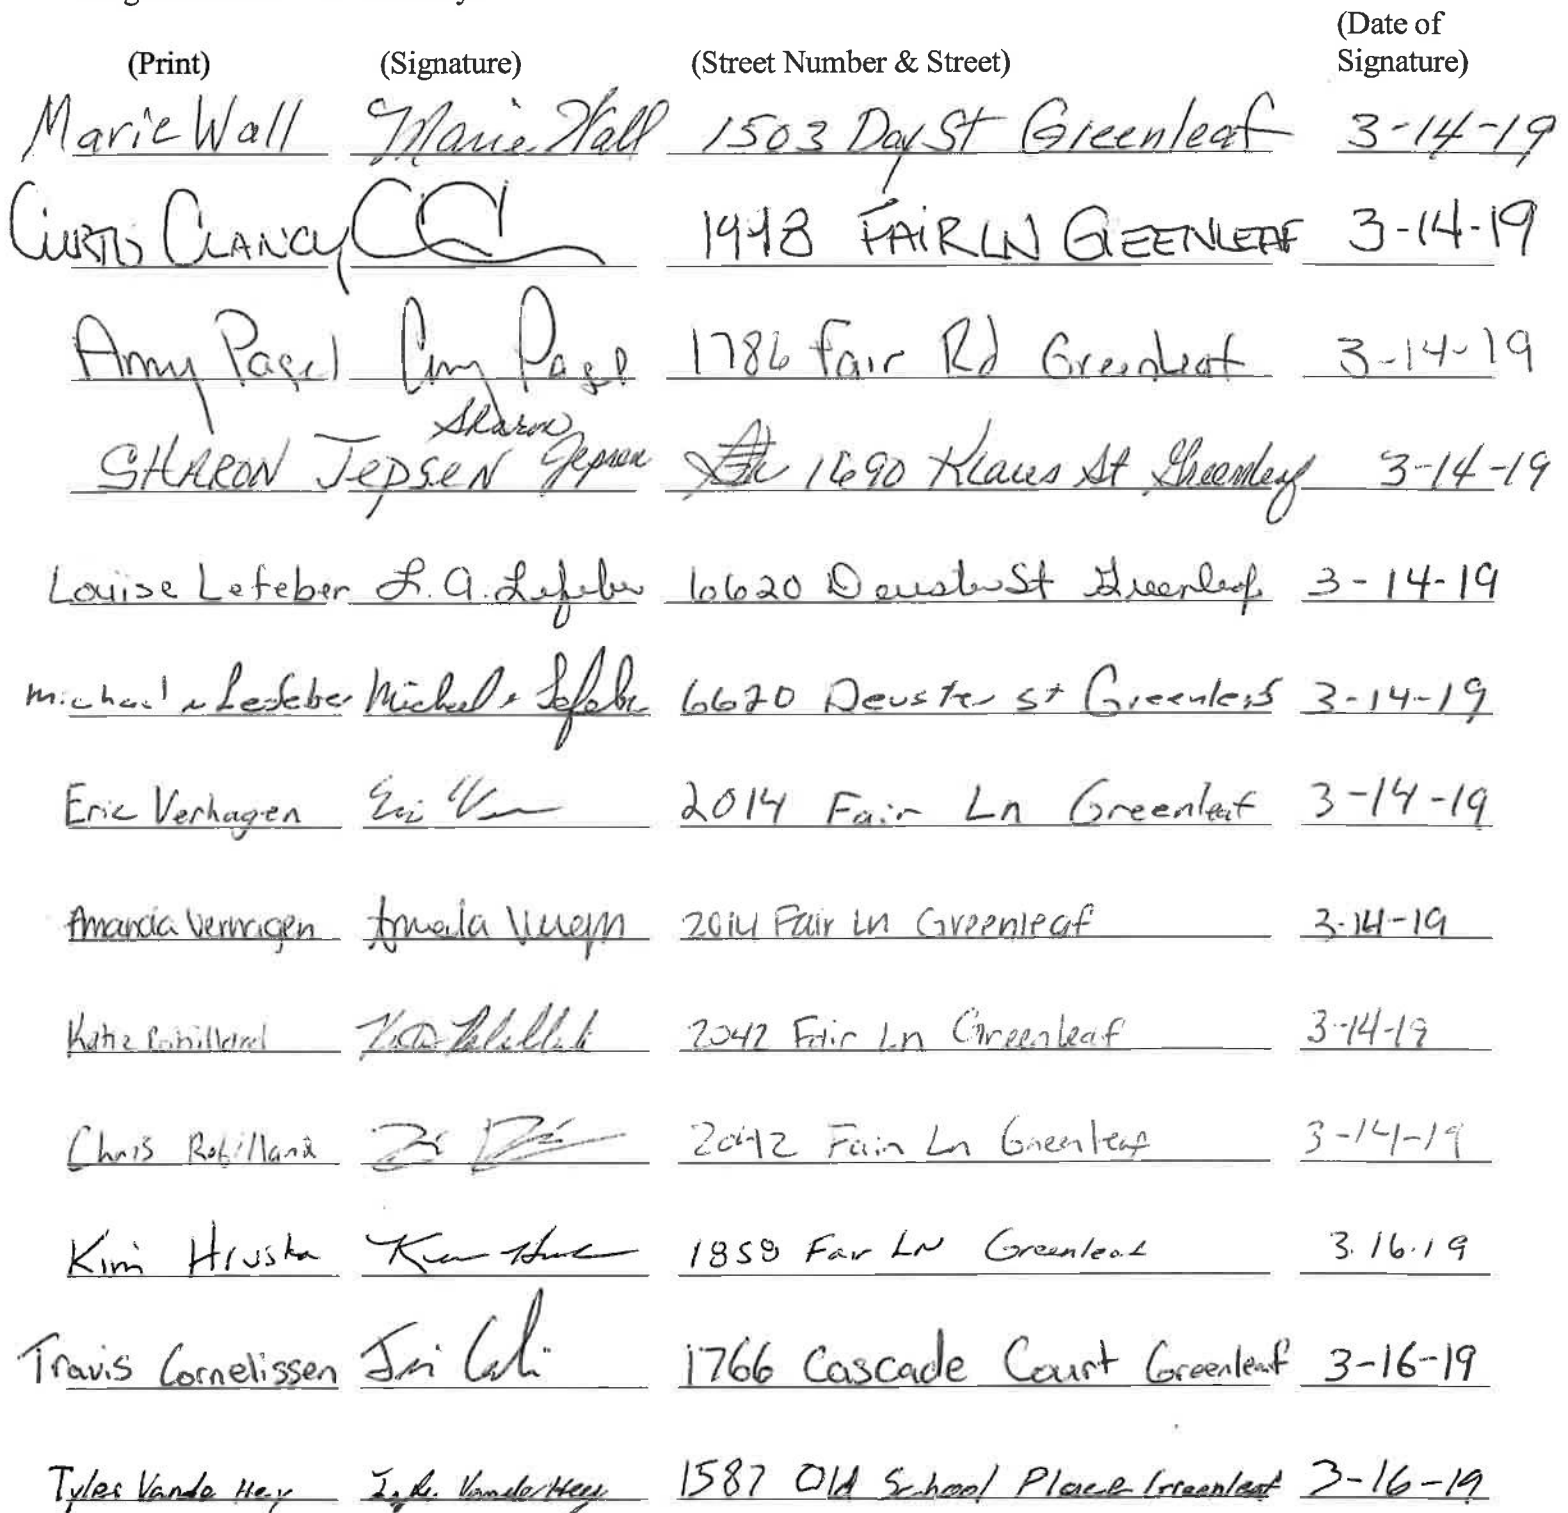 (Date of
(Print) (Signature) (Street Number & Street) Signature)
Marie Wall Marie Wall 1503 Day St Greenleaf 3-14-19
CURTIS CLANCY 1948 FAIR LN GEENLEAF 3-14-19
Amy Pagel Amy Pagel 1786 Fair Rd Greenleaf 3-14-19
Sharon
SHARON JEPSEN Jepsen 1690 Klaus St Greenleaf 3-14-19
Louise Lefeber L. A. Lefeber 6620 Deuster St Greenleaf 3-14-19
Michael Lefeber Michael Lefeber 6620 Deuster St Greenleaf 3-14-19
Eric Verhagen 2014 Fair Ln Greenleaf 3-14-19
Amanda Verhagen 2014 Fair Ln Greenleaf 3-14-19
Katie Robillard 2042 Fair Ln Greenleaf 3-14-19
Chris Robillard 2042 Fair Ln Greenleaf 3-14-19
Kim Hruska 1858 Fair LN Greenleaf 3.16.19
Travis Cornelissen 1766 Cascade Court Greenleaf 3-16-19
Tyler Vande Hey Vande Hey 1587 Old School Place Greenleaf 3-16-19